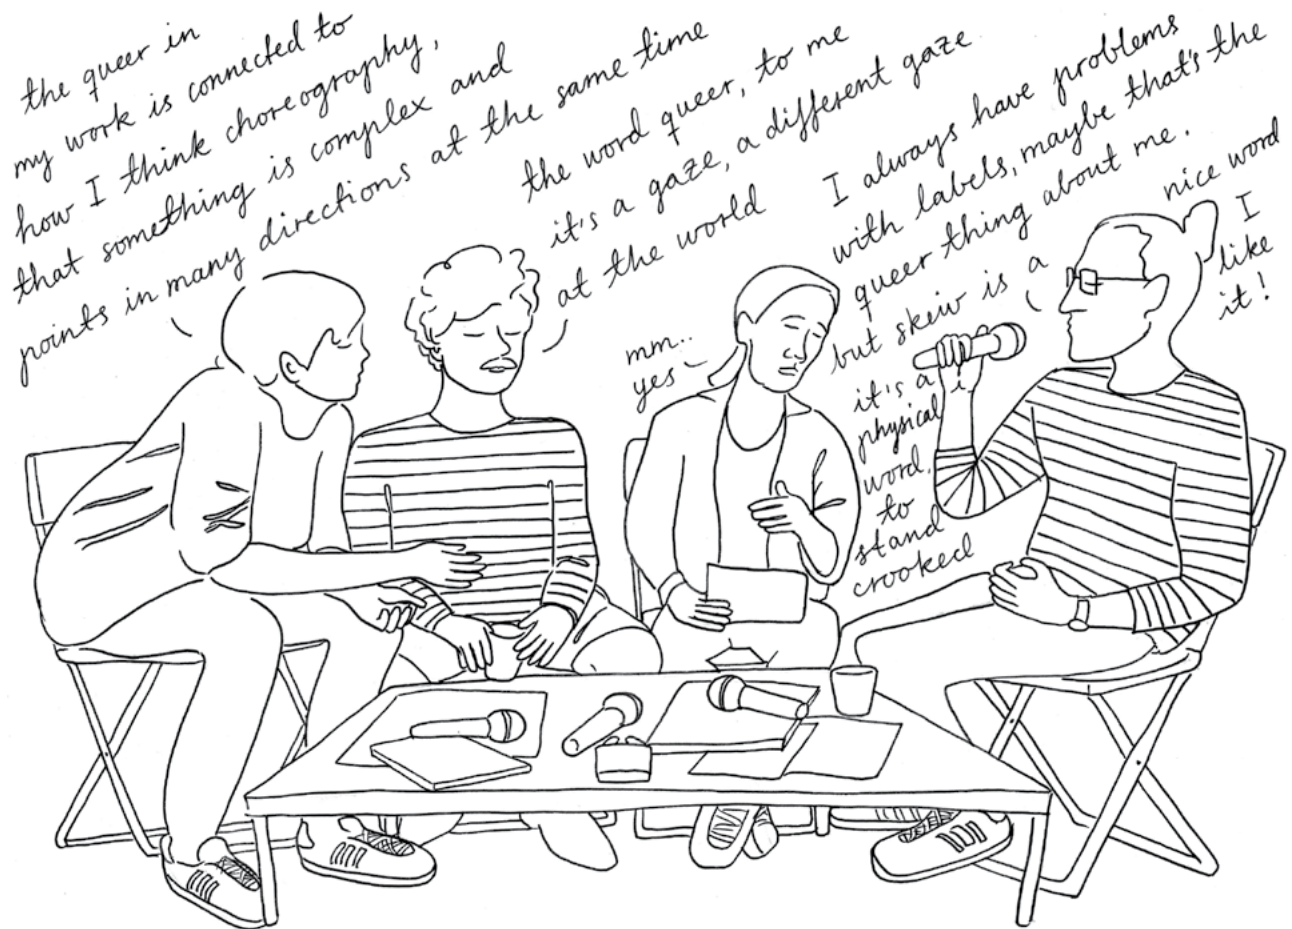 the queer in
my work is connected to
how I think choreography,
that something is complex and
points in many directions at the same time
the word queer, to me
it's a gaze, a different gaze
at the world
mm..
yes
I always have problems
with labels, maybe that's the
queer thing about me.
but skew is a
nice word
I
like
it!
it's a
physical
word,
to
stand
crooked